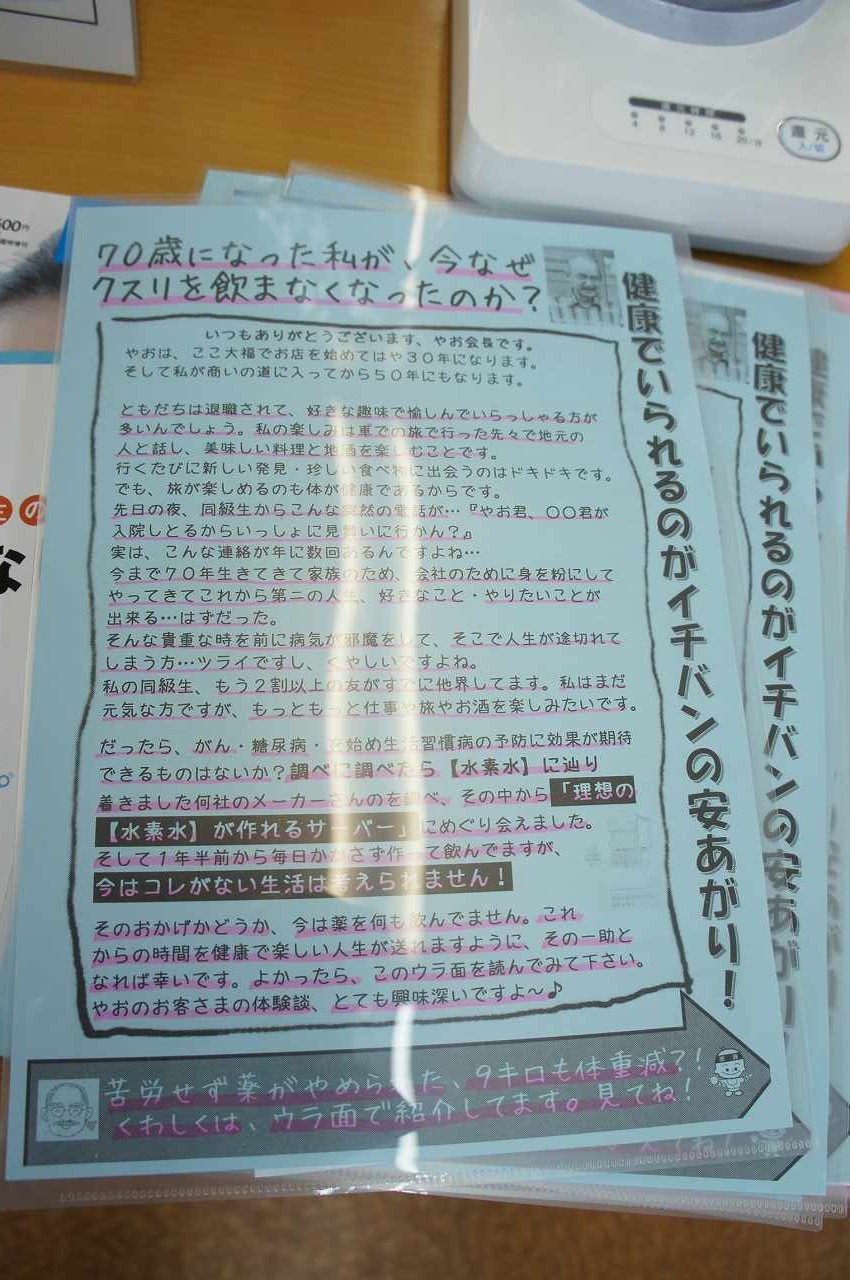 還元時間
4 8 12 16 20/H
還元
入/切
500円
70歳になった私が、今なぜ
クスリを飲まなくなったのか?
健康でいられるのがイチバンの安あがり!
いつもありがとうございます、やお会長です。
やおは、ここ大福でお店を始めてはや30年になります。
そして私が商いの道に入ってから50年にもなります。
ともだちは退職されて、好きな趣味で愉しんでいらっしゃる方が
多いんでしょう。私の楽しみは車での旅で行った先々で地元の
人と話し、美味しい料理と地酒を楽しむことです。
行くたびに新しい発見・珍しい食べ物に出会うのはドキドキです。
でも、旅が楽しめるのも体が健康であるからです。
先日の夜、同級生からこんな突然の電話が…『やお君、〇〇君が
入院しとるからいっしょに見舞いに行かん?』
実は、こんな連絡が年に数回あるんですよね…
今まで70年生きてきて家族のため、会社のために身を粉にして
やってきてこれから第二の人生、好きなこと・やりたいことが
出来る…はずだった。
そんな貴重な時を前に病気が邪魔をして、そこで人生が途切れて
しまう方…ツライですし、くやしいですよね。
私の同級生、もう2割以上の友がすでに他界してます。私はまだ
元気な方ですが、もっともっと仕事や旅やお酒を楽しみたいです。
だったら、がん・糖尿病・を始め生活習慣病の予防に効果が期待
できるものはないか?調べに調べたら【水素水】に辿り
着きました何社のメーカーさんのを調べ、その中から「理想の
【水素水】が作れるサーバー」にめぐり会えました。
そして1年半前から毎日かかさず作って飲んでますが、
今はコレがない生活は考えられません!
そのおかげかどうか、今は薬を何も飲んでません。これ
からの時間を健康で楽しい人生が送れますように、その一助と
なれば幸いです。よかったら、このウラ面を読んでみて下さい。
やおのお客さまの体験談、とても興味深いですよ~♪
苦労せず薬がやめられた、9キロも体重減?!
くわしくは、ウラ面で紹介してます。見てね!
健康でいられるのがイチバンの安あがり!